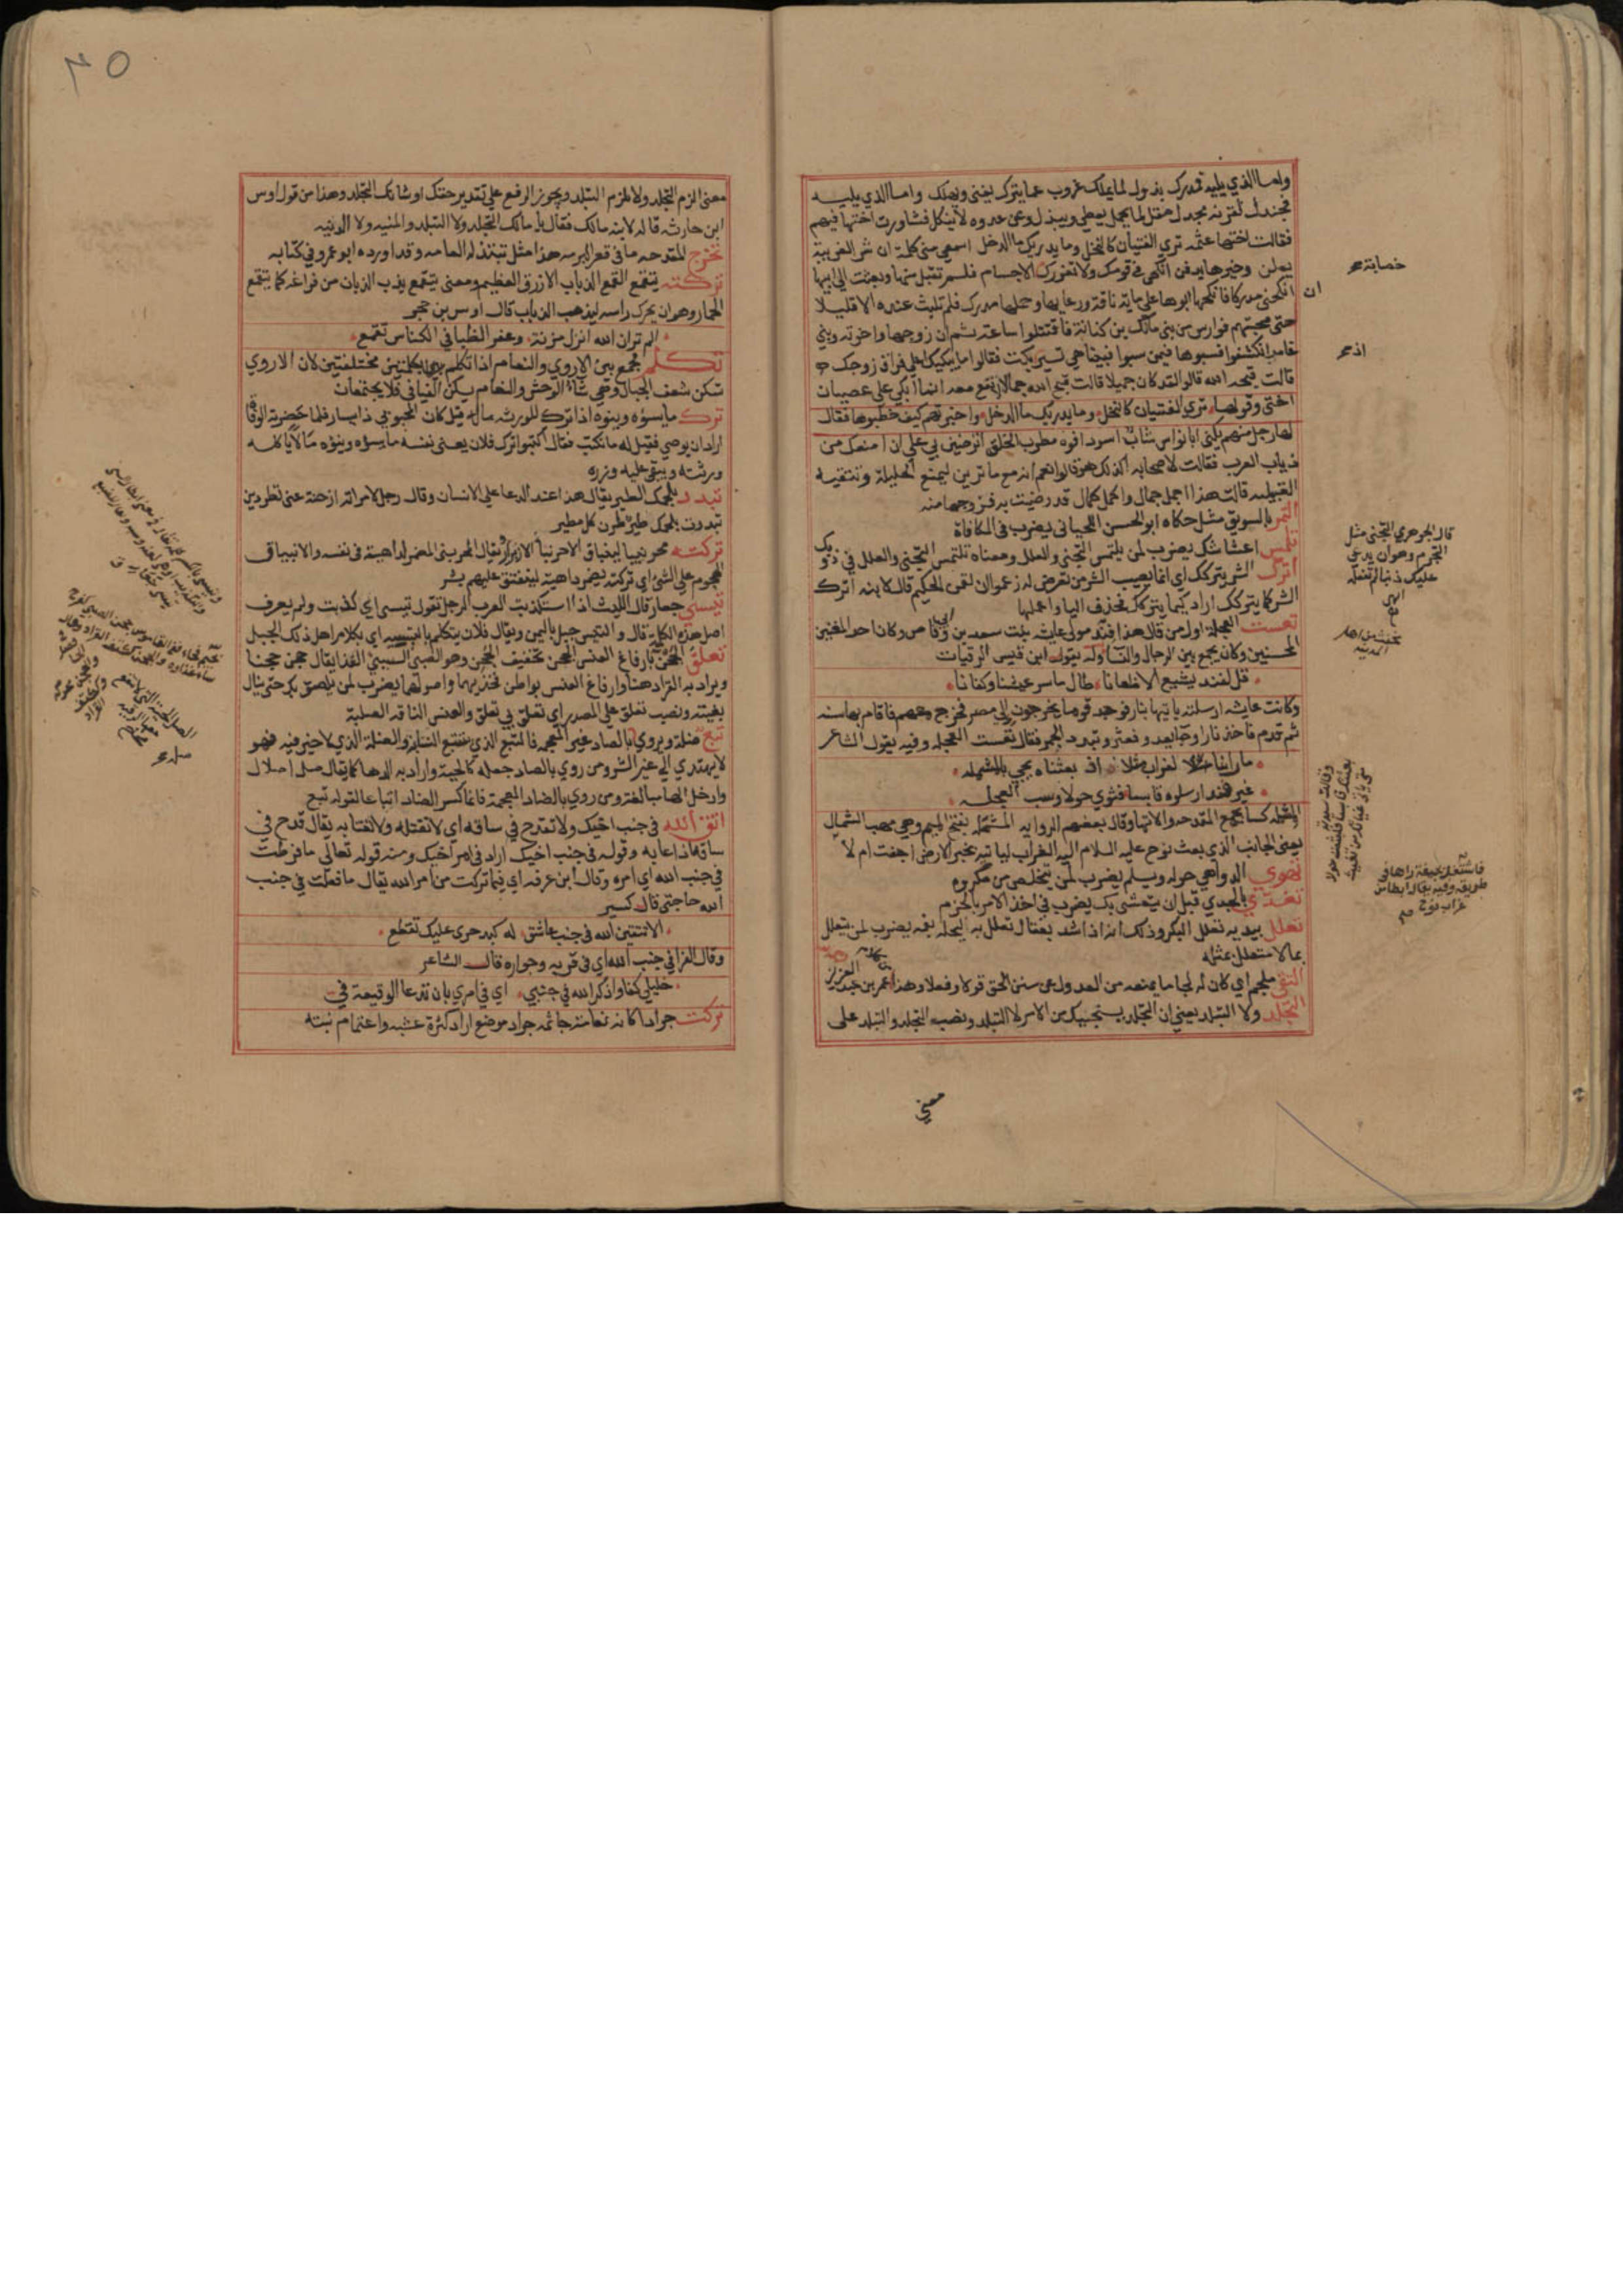 واما الذي يليه تمدرك بذول لما يملك عزوب عما يترك يغني ويهلك واما الذي يليه
فجندل لقرنه مجدل مقل لما يحمل يعطي ويبذل وعن عدوه لا ينكل فشاورت اختها فيهم
فقالت اختها عثمه ترى الفتيان كالنخل وما يدريك ما الدخل اسمعي مني كلمة ان شر الغريبة
يعلن وخيرها يدفن انكحي في قومك ولا تغررك الاجسام فلم تقبل منها وبعثت الى ابيها
انكحني مدركا فانكحها ابوها على ماية ناقة ورعايها وحملها مدرك فلم تلبث عنده الا قليلا
حتى صبحتهم فوارس من بني مالك بن كنانة فاقتتلوا ساعة ثم ان زوجها واخوته وبني
عامر انكشفوا فسبوها فيمن سبوا فبينا هي تسير بكت فقالوا ما يبكيك اعلى فراق زوجك
قالت قبحه الله قالوا لقد كان جميلا قالت قبح الله جمالا لا نفع معه انما ابكي على عصياني
اختي وقولها ترى الفتيان كالنخل وما يدريك ما الدخل واخبرتهم كيف خطبوها فقال
لها رجل منهم يكنى ابا نواس شاب اسود افوه مضطرب الخلق اترضين بي على ان امنعك من
ذياب العرب فقالت لاصحابه اكذلك هو قالوا نعم انه مع ما ترين ليمنع الحليلة وتتقيه
القبيلة قالت هذا اجمل جمال واكمل كمال قد رضيت به فزوجها منه
التمر بالسويق مثل حكاه ابو الحسن اللحياني يضرب في المكافاة
تلمس اعشاشك يضرب لمن يلتمس التجني والعلل ومعناه تلتمس التجني والعلل في ذويك
اترك الشر يتركك اي انما يصيب الشر من تعرض له زعموا ان لقمن الحكيم قال لابنه اترك
الشر كما يتركك اراد كيما يتركك فحذف اليا واعملها
تعست العجلة اول من قال هذا فند مولى عايشة بنت سعد بن ابي وقاص وكان احد المغنين
المحسنين وكان يجمع بين الرجال والنسا وله يقول ابن قيس الرقيات
قل لفند يشيع الاظعانا طال ما سر عيشنا وكفانا
وكانت عايشه ارسلته ياتيها بنار فوجد قوما يخرجون الى مصر فخرج معهم فاقام بها سنة
ثم قدم فاخذ نارا وجا يعدو فعثر وتبدد الجمر فقال تعست العجلة وفيه يقول الشاعر
ما راينا لغراب مثلا اذ بعثناه يجي بالمشمله
غير فند ارسلوه قابسا فثوى حولا وسب العجلة
المشمله كسا يجمع المقدحه والاتها وقال بعضهم الرواية المشمله بفتح الميم وهي مهب الشمال
يعني الجانب الذي بعث نوح عليه السلام اليه الغراب لياتيه بخبر الارض اجفت ام لا
تهوي الدواهي حوله ويسلم يضرب لمن يتخلص من مكروه
تغدى بالجدي قبل ان يتعشى بك يضرب في اخذ الامر بالحزم
تعلل بيديه تعلل البكر وذلك انه اذا شد بعقال تعلل به ليحله بفمه يضرب لمن يتعلل
بما لا متعلل بمثله
التقي ملجم اي كان له لجاما يمنعه من العدول عن سنن الحق قولا وفعلا وهذا من كلام عمر بن عبد العزيز
التجلد ولا التبلد يعني ان التجلد ينجيك من الامر لا التبلد ونصب التجلد والتبلد على
معنى
قال الجوهري التجني مثل
التجرم وهو ان يدعي
عليك ذنبا لم تفعله
٣٥
معنى الزم التجلد ولا تلزم التبلد ويجوز الرفع على تقدير حقك او شانك التجلد وهذا من قول اوس
ابن حارثه قاله لابنه مالك فقال يا مالك التجلد ولا التبلد والمنيه ولا الدنيه
تخرج المقدحه ما في قعر البرمه هذا مثل تبتذله العامه وقد اورده ابو عمرو في كتابه
تركته يتقمع القمع الذباب الازرق العظيم ومعنى يتقمع يذب الذبان من فراغه كما يتقمع
الحمار وهو ان يحرك راسه ليذهب الذباب قال اوس بن حجر
الم تر ان الله انزل مزنة وعفر الظبا في الكناس تقمع
تكلم فجمع بين الاروي والنعام اذا تكلم بكلمتين مختلفتين لان الاروي
تسكن شعف الجبال وهي شاة الوحش والنعام يسكن الفيافي فلا يجتمعان
ترك ما يسوءه وينوه اذا ترك للورثه ماله قيل كان المحبوبي ذا يسار فلما حضرته الوفاة
اراد ان يوصي فقيل له ما نكتب فقال اكتبوا ترك فلان يعني نفسه ما يسوءه وينوءه مالا ياكله
ورثته ويبقى عليه وزره
تبدد بلحمك الطير يقال هذا عند الدعا على الانسان وقال رجل لامراته ازحنة عني تطردين
تبددت بلحمك طير طرن كل مطير
تركته محرنبيا لينباق الاحرنبا الازبيرار يقال احرنبى المضمر لداهية في نفسه والانبياق
الهجوم على الشي اي تركته يضمر داهية لينفتق عليهم بشر
تيسي جعار قال الليث اذا استكذبت العرب الرجل تقول تيسي اي كذبت ولم يعرف
اصل هذه الكلمة قال والتيس جبل باليمن ويقال فلان يتكلم بالتيسيه اي بكلام اهل ذلك الجبل
تعلق الحجن بارفاغ العنس الحجن تخفيف الحجن وهو الصبي السيئ الغذا يقال حجن حجنا
ويراد به القراد هنا وارفاغ العنس بواطن فخذيها واصولهما يضرب لمن يلصق بك حتى ينال
بغيته ونصب تعلق على المصدر اي تعلق بي تعلق والعنس الناقه الصلبة
تتبع ضلة ويروى بالصاد غير المعجمه فالتتبع الذي يتتبع النسا والضلة الذي لا خير فيه فهو
لا يهتدي الى غير الشر ومن روى بالصاد جعله كالحية واراد به الدها كما يقال صل اصلال
وادخل الها مبالغة ومن روى بالضاد المعجمة فانما كسر الضاد اتباعا لقوله تبع
اتق الله في جنب اخيك ولا تقدح في ساقه اي لا تقتله ولا تغتابه يقال قدح في
ساقه اذا عابه وقوله في جنب اخيك اراد في امر اخيك ومنه قوله تعالى ما فرطت
في جنب الله اي امره وقال ابن عرفه اي فيما تركت من امر الله يقال ما فعلت في جنب
الله حاجتي قال كسير
الا تتقين الله في جنب عاشق له كبد حرى عليك تقطع
وقال الفرا في جنب الله اي في قربه وجواره قال الشاعر
خليلي كفا واذكرا الله في جنبي اي في امري بان تدعا الوقيعة في
تركت جرادا كانه نعامة جاثمه جراد موضع اراد كثرة عشبه واعتمام نبته